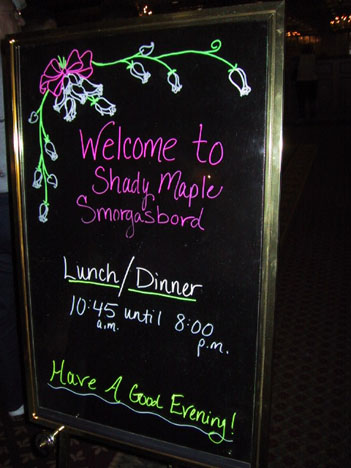 Welcome to
Shady Maple
Smorgasbord
Lunch/Dinner
10:45 until 8:00
a.m. p.m.
Have A Good Evening!